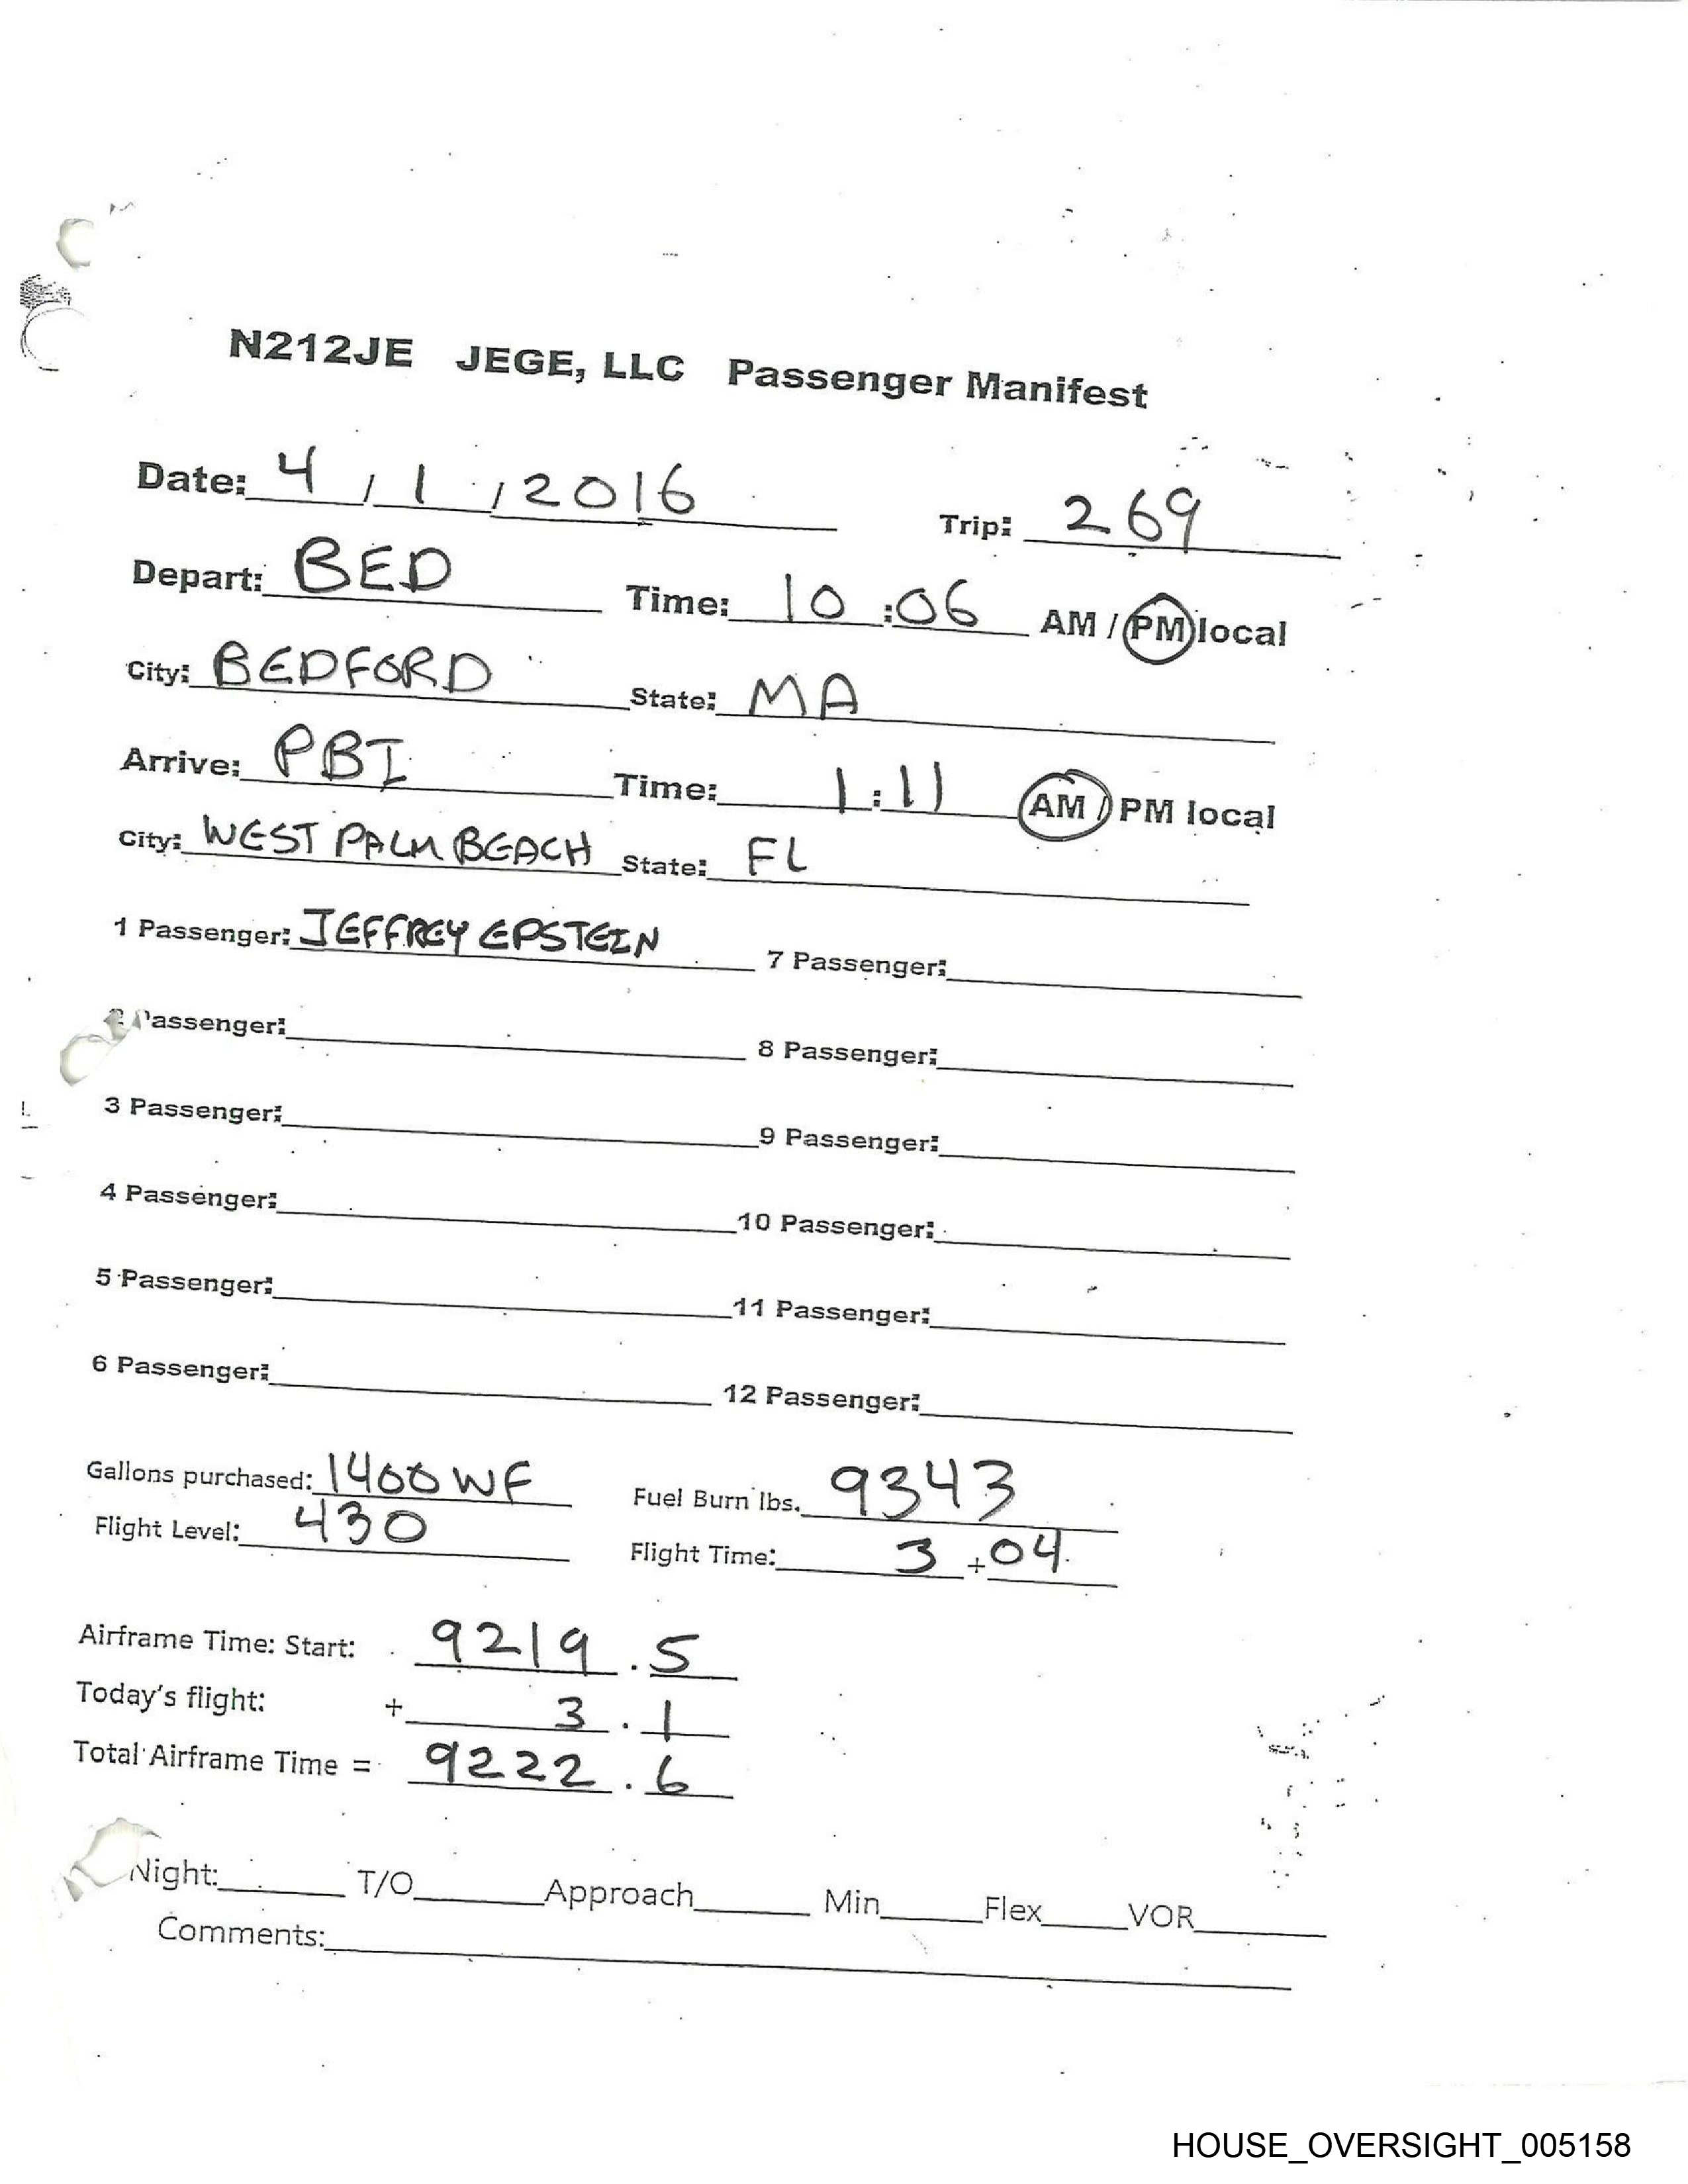 N212JE JEGE, LLC Passenger Manifest
Date: 4 / 1 / 2016 Trip: 269
Depart: BED Time: 10 :06 AM / PM local
City: BEDFORD State: MA
Arrive: PBI Time: 1:11 AM / PM local
City: WEST PALM BEACH State: FL
1 Passenger: JEFFREY EPSTEIN 7 Passenger:
2 Passenger: 8 Passenger:
3 Passenger: 9 Passenger:
4 Passenger: 10 Passenger:
5 Passenger: 11 Passenger:
6 Passenger: 12 Passenger:
Gallons purchased: 1400 WF Fuel Burn lbs. 9343
Flight Level: 430 Flight Time: 3 + 04
Airframe Time: Start: 9219 . 5
Today's flight: + 3 . 1
Total Airframe Time = 9222 . 6
Night: T/O Approach Min Flex VOR
Comments:
HOUSE_OVERSIGHT_005158